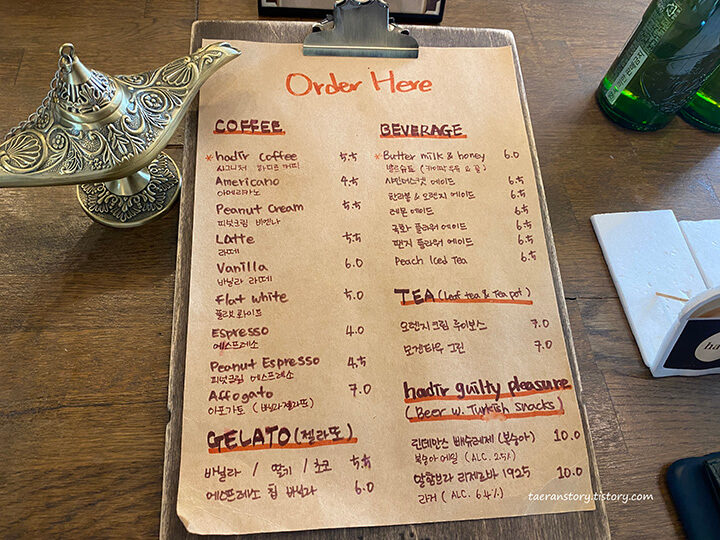 Order Here
COFFEE
* hadir coffee 5.5
시그니처 하디르 커피
Americano 4.5
아메리카노
Peanut Cream 5.5
피넛크림 비엔나
Latte 5.5
라떼
Vanilla 6.0
바닐라 라떼
Flat white 5.0
플랫 화이트
Espresso 4.0
에스프레소
Peanut Espresso 4.5
피넛크림 에스프레소
Affogato 7.0
아포가토 (바닐라젤라또)
GELATO (젤라또)
바닐라 / 딸기 / 초코 5.5
에스프레소 칩 바닐라 6.0
BEVERAGE
* Butter milk & honey 6.0
샤인머스켓 에이드 6.5
한라봉 & 오렌지 에이드 6.5
레몬 에이드 6.5
국화 플라워 에이드 6.5
팬지 플라워 에이드 6.5
Peach Iced Tea 6.5
TEA (Leaf tea & Tea pot)
오렌지크림 루이보스 7.0
모겐타우 그린 7.0
hadir guilty pleasure
(Beer w. Turkish snacks)
린데만스 빼슈레제 (복숭아) 10.0
복숭아 에일 (ALC. 2.5%)
알함브라 리제르바 1925 10.0
라거 (ALC. 6.4%)
taeranstory.tistory.com